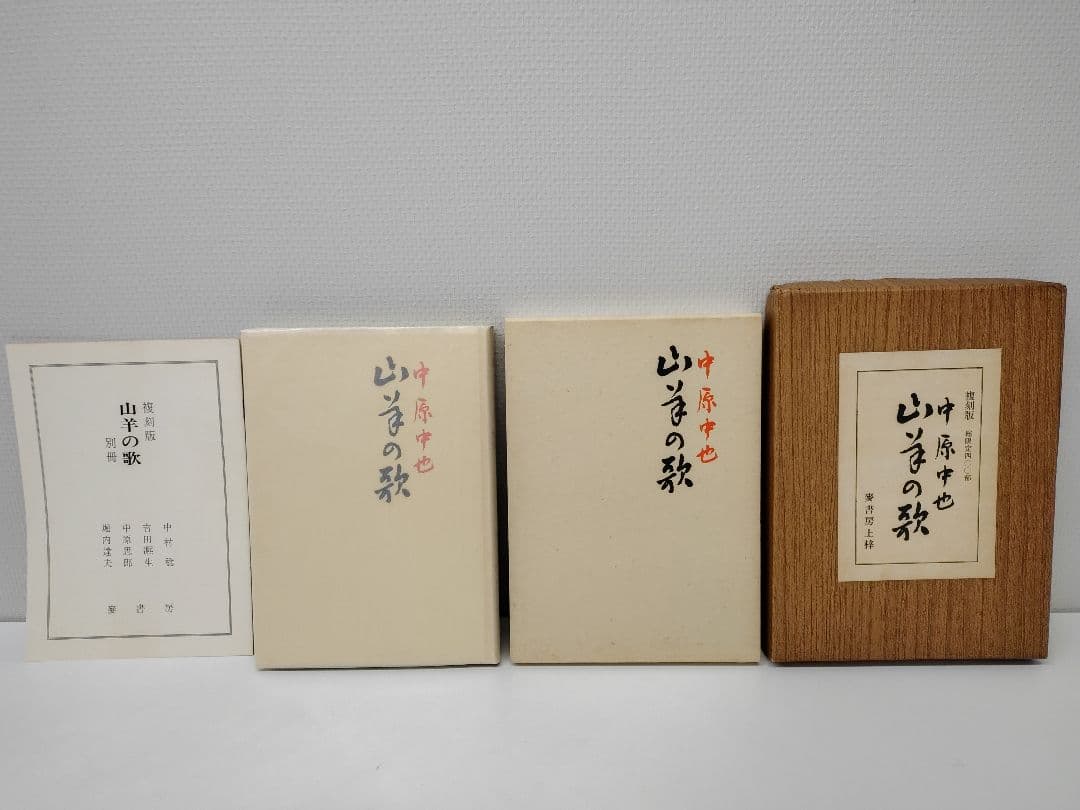 複刻版
山羊の歌
別冊
中村稔
吉田凞生
中原思郎
堀内達夫
麥書房
中原中也
山羊の歌
中原中也
山羊の歌
複刻版
中原中也
山羊の歌
麥書房上梓